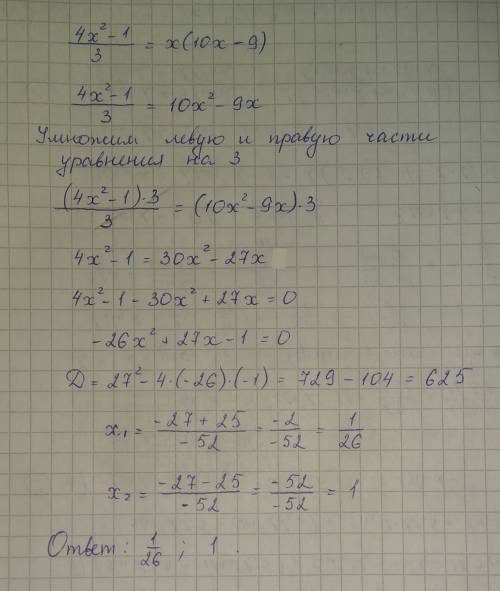 (4x² - 1)/3 = x(10x - 9)
(4x² - 1)/3 = 10x² - 9x
Умножим левую и правую части
уравнения на 3
((4x² - 1)·3)/3 = (10x² - 9x)·3
4x² - 1 = 30x² - 27x
4x² - 1 - 30x² + 27x = 0
-26x² + 27x - 1 = 0
D = 27² - 4·(-26)·(-1) = 729 - 104 = 625
x₁ = (-27 + 25)/(-52) = (-2)/(-52) = 1/26
x₂ = (-27 - 25)/(-52) = (-52)/(-52) = 1
Ответ: 1/26 ; 1.